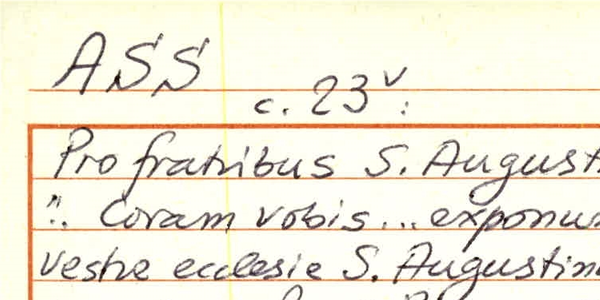 ASS
c. 23v:
Pro fratribus S. Augusti
": Coram vobis... exponu
vestre ecclesie S. Augustin